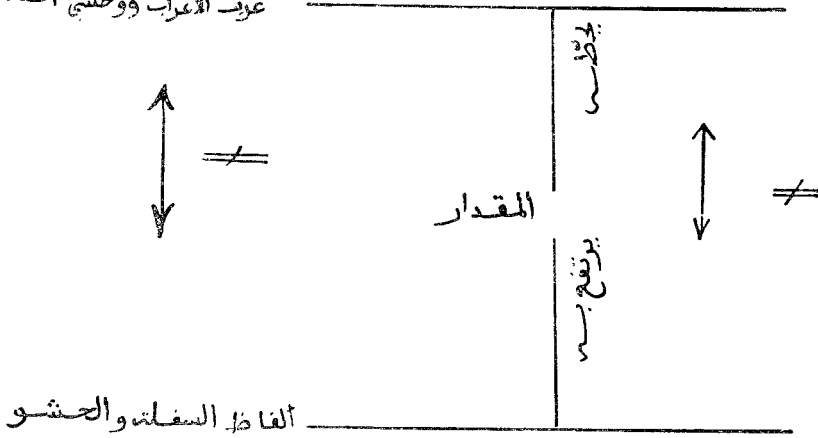 غريب الأعراب ووحشي
يحطّه
المقدار
يرتفع به
ألفاظ السفلة والحشو